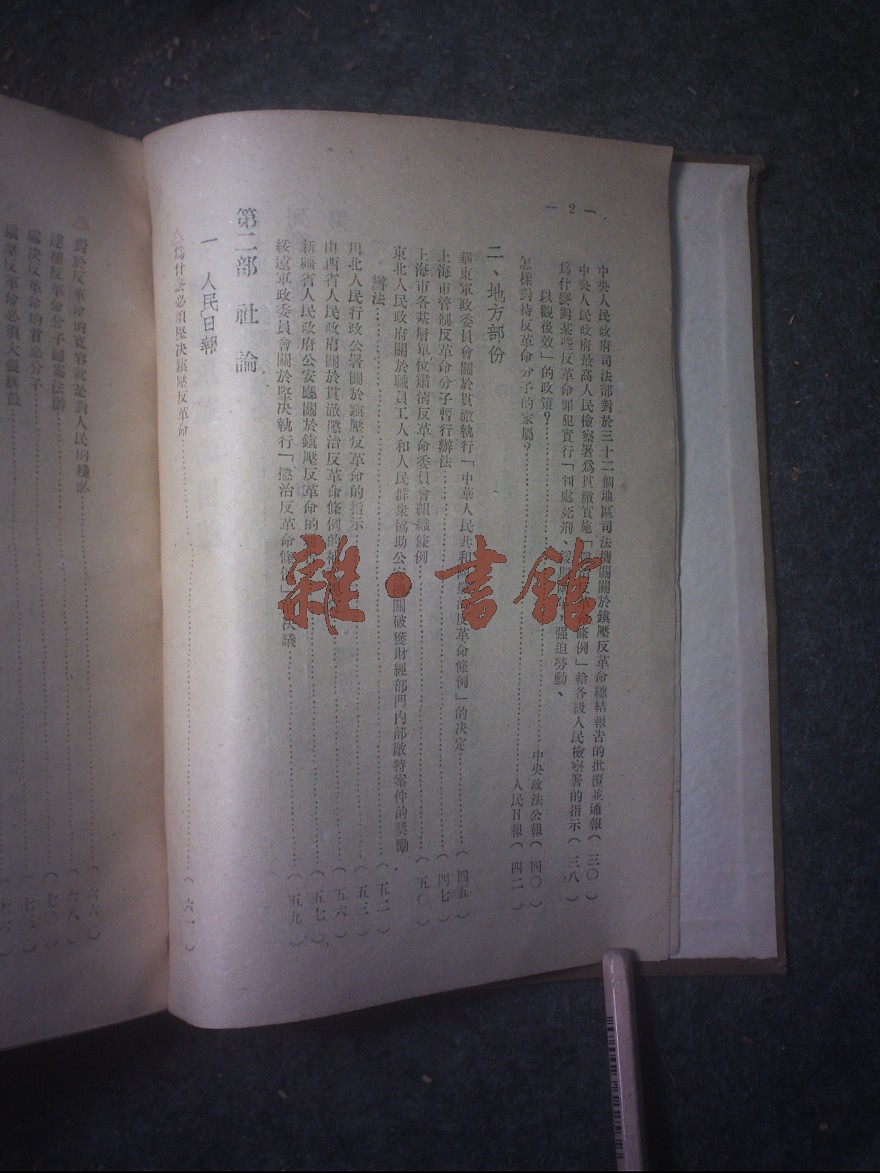 — 2 —
中央人民政府司法部對於三十二個地區司法機關關於鎮壓反革命總結報告的批復並通報(三〇)
中央人民政府最高人民檢察署爲貫澈實施「 條例」給各級人民檢察署的指示(三八)
爲什麼對某些反革命罪犯實行「判處死刑、緩期 强迫勞動、
以觀後效」的政策?……中央政法公報(四〇)
怎樣對待反革命分子的家屬?……人民日報(四二)
二、地方部份
華東軍政委員會關於貫澈執行「中華人民共和 懲治反革命條例」的决定……(四五)
上海市管制反革命分子暫行辦法……(四七)
上海市各基層單位肅清反革命委員會組織條例……(五〇)
東北人民政府關於職員工人和人民群衆協助公安機關破獲財經部門內部敵特案件的獎勵
辦法……(五二)
川北人民行政公署關於鎮壓反革命的指示……(五三)
山西省人民政府關於貫澈懲治反革命條例的 ……(五六)
新疆省人民政府公安廳關於鎮壓反革命的 ……(五七)
綏遠軍政委員會關於堅决執行「懲治反革命條例」 决議……(五九)
第二部 社論
一 人民日報
△爲什麼必須堅决鎮壓反革命……(六一)
△對於反革命的寬容就是對人民的殘忍……(六六)
逮捕反革命分子歸案法辦……(六八)
處决反革命的首惡分子
鎮壓反革命必須大張旗鼓
雜·書館